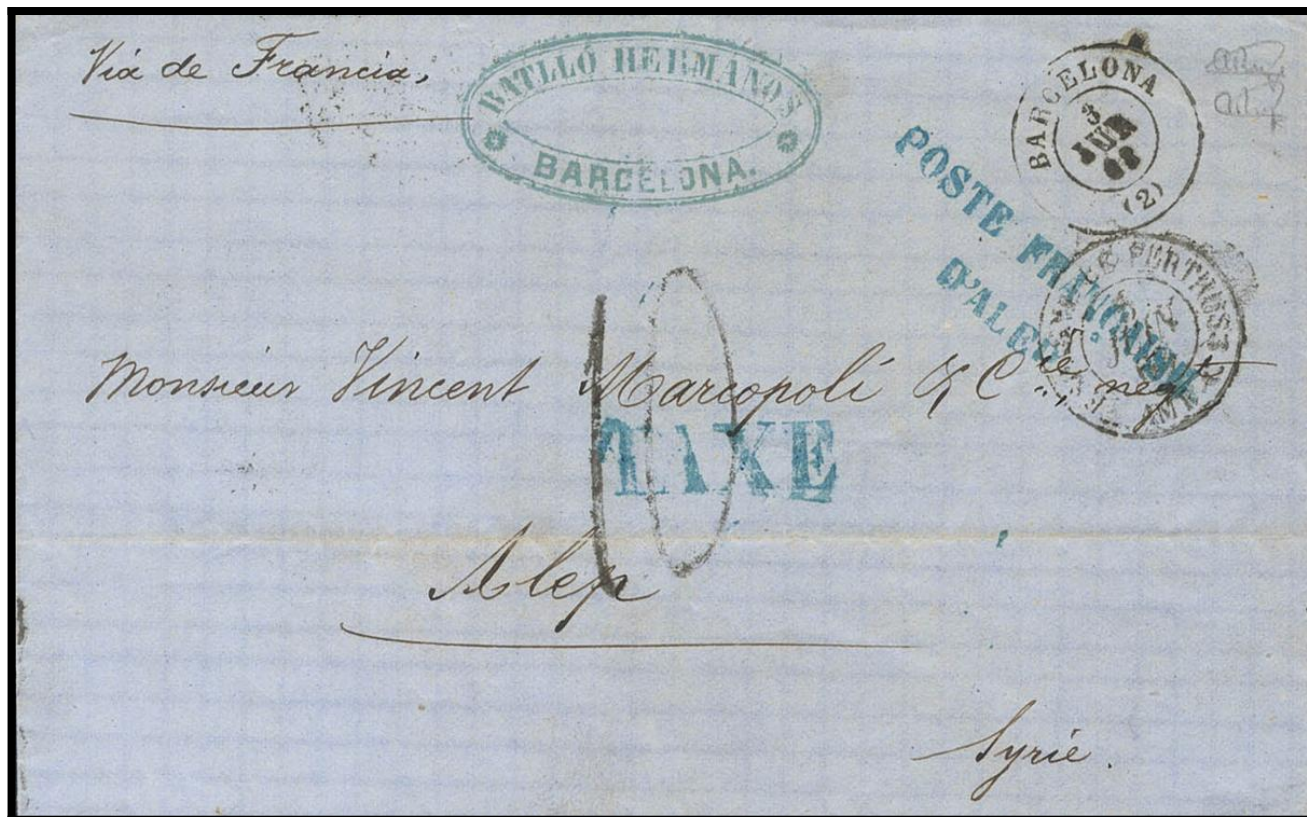 Via de Francia,
BATLLÓ HERMANOS
BARCELONA.
BARCELONA
3
JUN
68
(2)
POSTE FRANÇAISE
D'ALEP
LE PERTHUS
Monsieur Vincent Marcopoli & Cie, negts
10
TAXE
Alep
Syrie.